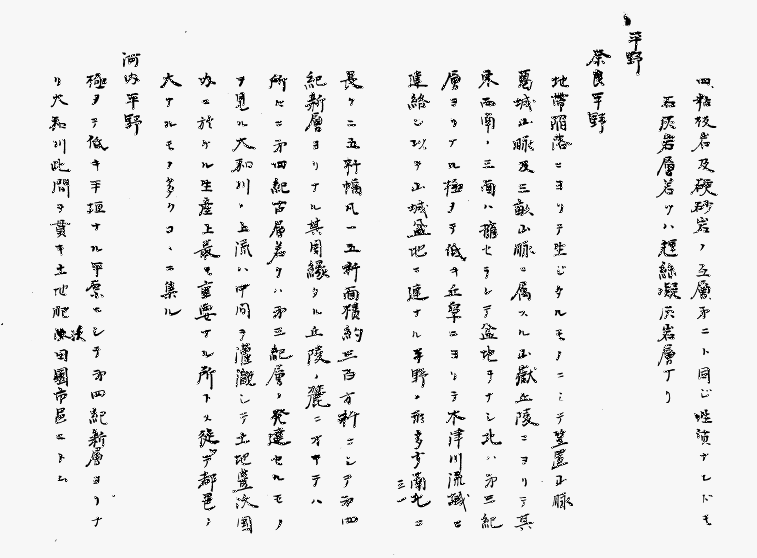 四、粘板岩及硬砂岩ノ互層第二ト同ジ性質ナレドモ
石灰岩層若クハ輝緑凝灰岩層ナリ
平野
奈良平野
地帯陥落ニヨリテ生ジタルモノニシテ笠置山脈
葛城山脈及三畝山脈ニ属スル山嶽丘陵ニヨリテ其
東西南ノ三面ハ擁セラレテ盆地ヲナシ北ハ第三紀
層ヨリナル極メテ低キ丘阜ニヨリテ木津川流域ニ
連絡シ以テ山城盆地ニ連ナル平野ノ形多少南北ニ
長クニ五粁幅凡一五粁面積約三百方粁ニシテ第四
紀新層ヨリナル其周縁タル丘陵ノ麓ニオキテハ
所々ニ第四紀古層若クハ第三紀層ノ発達セルモノ
ヲ見ル大和川ノ上流ハ中間ヲ灌漑シテ土地豊沃国
内ニ於ケル生産上最モ重要ナル所トス従テ都邑ノ
大ナルモノ多クコヽニ集ル
河内平野
極メテ低キ平坦ナル平原ニシテ第四紀新層ヨリナ
リ大和川此間ヲ貫キ土地肥沃田園市邑ニトム